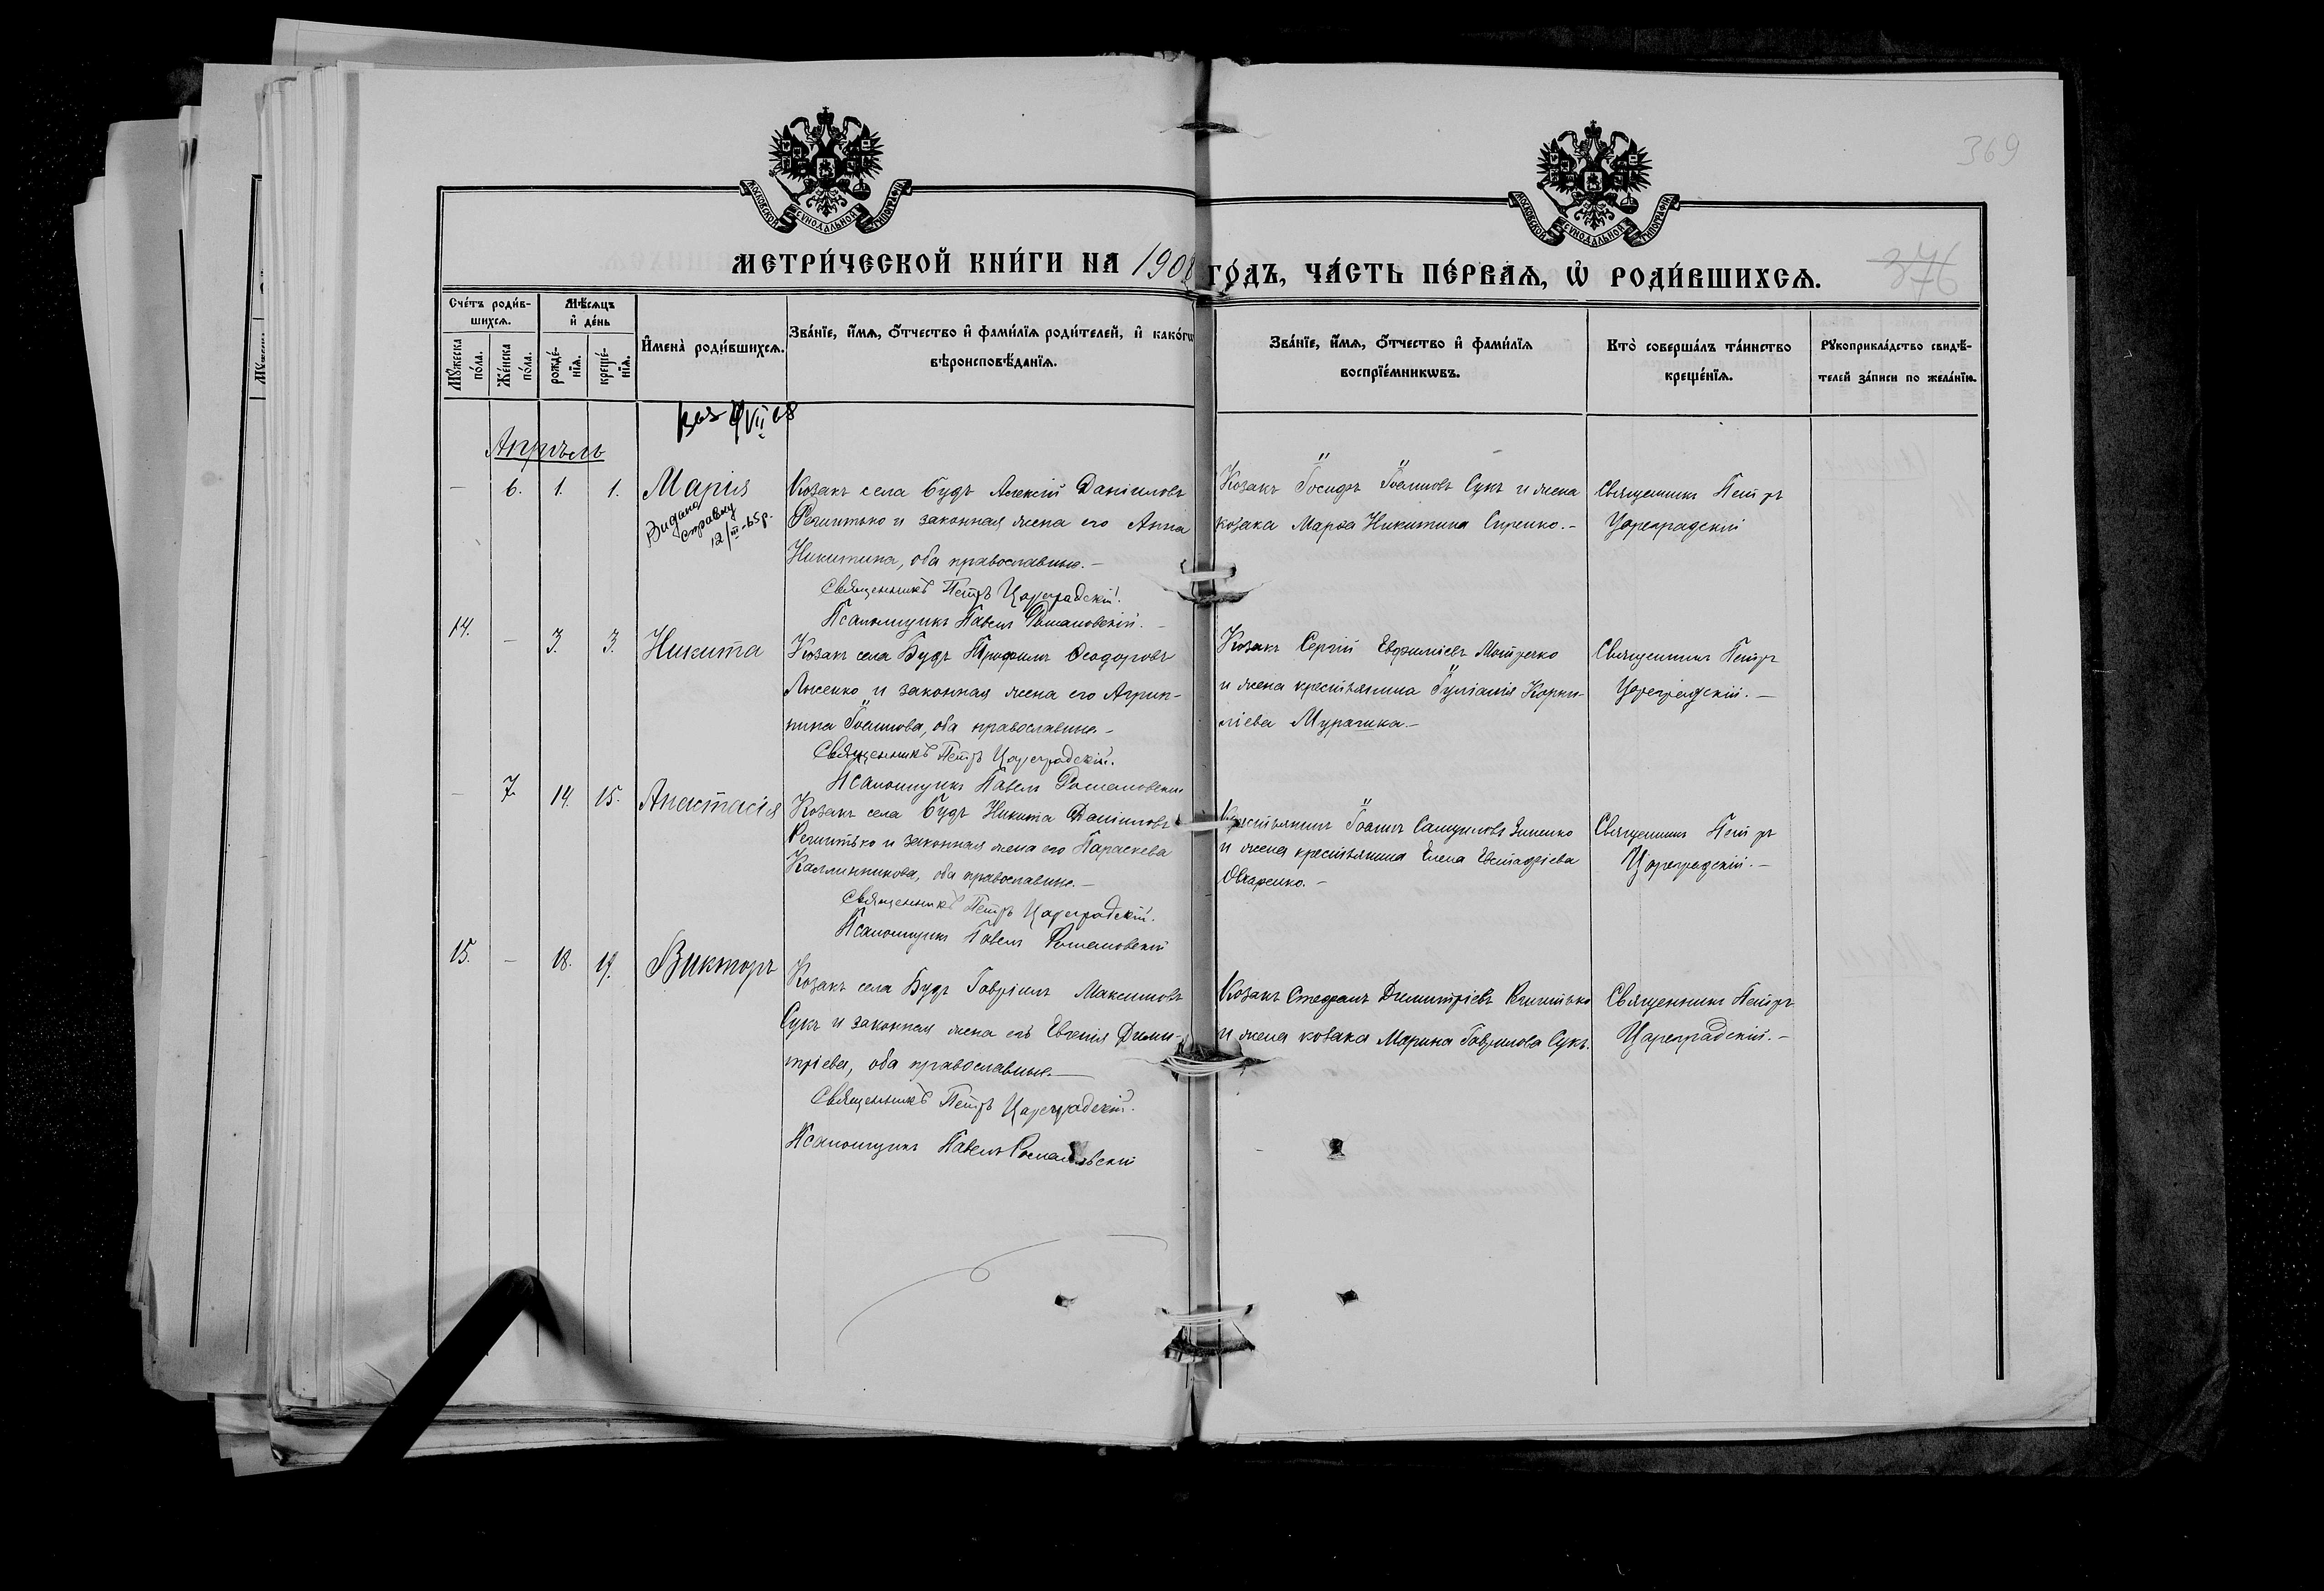 369
376
МОСКОВСКОЙ СѴНОДАЛЬНОЙ ТИПОГРАФІИ
МОСКОВСКОЙ СѴНОДАЛЬНОЙ ТИПОГРАФІИ
МЕТРИ́ЧЕСКОЙ КНИ́ГИ НА 1908 ГО́ДЪ, ЧА́СТЬ ПЕ́РВАѦ, Ѡ҆ РОДИ́ВШИХСѦ.
Сче́тъ роди́в-
шихсѧ.
Мѣ́сѧцъ
и҆ де́нь
Мꙋ́жеска
по́ла.
Же́нска
по́ла.
рожде́-
нїѧ.
креще́-
нїѧ.
И҆мена̀ роди́вшихсѧ.
Зва́нїе, и҆́мѧ, ѻ҆́тчество и҆ фами́лїѧ роди́телей, и҆ како́гѡ
вѣроисповѣ́данїѧ.
Зва́нїе, и҆́мѧ, ѻ҆́тчество и҆ фами́лїѧ
воспрїе́мникѡвъ.
Кто̀ соверша́лъ та́инство
креще́нїѧ.
Рꙋкоприкла́дство свидѣ́-
телей за́писи по жела́нїю.
Апрѣль
— 6. 1. 1. Марія
Видана
справку
12/III-65р.
Козакъ села Будъ Алексій Даніиловъ
Решитько и законная жена его Анна
Никитина, оба православные.—
Священникъ Петръ Цареградскій.
Псаломщикъ Павелъ Романовскій.—
Козакъ Іосифъ Іоанновъ Сукъ и жена
козака Марѳа Никитина Сиренко.—
Священникъ Петръ
Цареградскій
14. — 3. 3. Никита
Козакъ села Будъ Трофимъ Ѳеодоровъ
Лысенко и законная жена его Агрип-
пина Іоаннова, оба православные.—
Священникъ Петръ Цареградскій.
Псаломщикъ Павелъ Романовскій
Козакъ Сергій Евфиміевъ Мотренко
и жена крестьянина Іуліанія Корни-
ліева Мурашка.—
Священникъ Петръ
Цареградскій.—
— 7. 14. 15. Анастасія
Козакъ села Будъ Никита Даніиловъ
Решитько и законная жена его Параскева
Каллинникова, оба православные.—
Священникъ Петръ Цареградскій.
Псаломщикъ Павелъ Романовскій
Крестьянинъ Іоаннъ Самуиловъ Зиненко
и жена крестьянина Елена Евстафіева
Овчаренко.—
Священникъ Петръ
Цареградскій.—
15. — 18. 19. Викторъ
Козакъ села Будъ Гавріилъ Максимовъ
Сукъ и законная жена его Евгенія Дими-
тріева, оба православные.—
Священникъ Петръ Цареградскій.
Псаломщикъ Павелъ Романовскій
Козакъ Стефанъ Димитріевъ Решитько
и жена козака Марина Гаврилова Сукъ.
Священникъ Петръ
Цареградскій.—